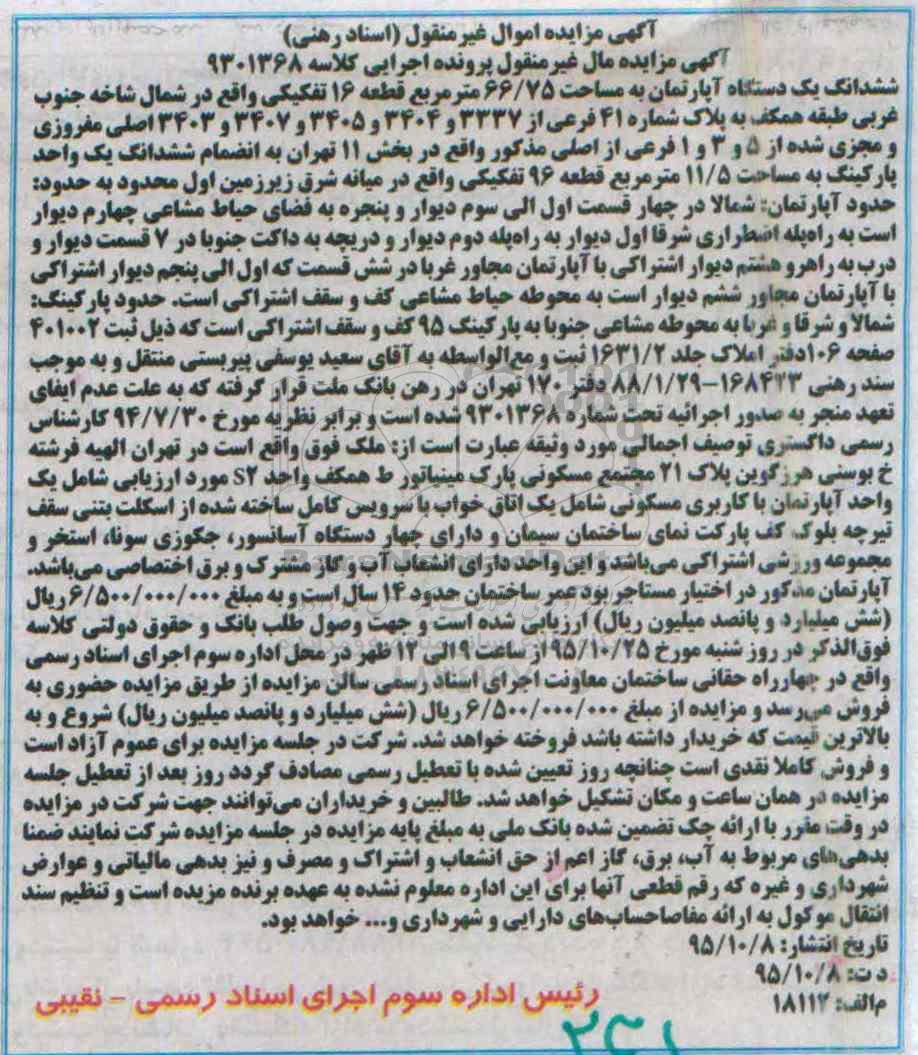 آگهی مزایده اموال غیرمنقول (اسناد رهنی)
آگهی مزایده مال غیرمنقول پرونده اجرایی کلاسه ۹۳۰۱۳۶۸
ششدانگ یک دستگاه آپارتمان به مساحت ۶۶/۷۵ مترمربع قطعه ۱۶ تفکیکی واقع در شمال شاخه جنوب
غربی طبقه همکف به پلاک شماره ۴۱ فرعی از ۳۳۳۷ و ۳۴۰۴ و ۳۴۰۵ و ۳۴۰۷ و ۳۴۰۳ اصلی مفروزی
و مجزی شده از ۵ و ۳ و ۱ فرعی از اصلی مذکور واقع در بخش ۱۱ تهران به انضمام ششدانگ یک واحد
پارکینگ به مساحت ۱۱/۵ مترمربع قطعه ۹۶ تفکیکی واقع در میانه شرق زیرزمین اول محدود به حدود:
حدود آپارتمان: شمالا در چهار قسمت اول الی سوم دیوار و پنجره به فضای حیاط مشاعی چهارم دیوار
است به راه‌پله اضطراری شرقا اول دیوار به راه‌پله دوم دیوار و دریچه به داکت جنوبا در ۷ قسمت دیوار و
درب به راهرو هشتم دیوار اشتراکی با آپارتمان مجاور غربا در شش قسمت که اول الی پنجم دیوار اشتراکی
با آپارتمان مجاور ششم دیوار است به محوطه حیاط مشاعی کف و سقف اشتراکی است. حدود پارکینگ:
شمالا و شرقا و غربا به محوطه مشاعی جنوبا به پارکینگ ۹۵ کف و سقف اشتراکی است که ذیل ثبت ۴۰۱۰۰۲
صفحه ۱۰۶دفتر املاک جلد ۱۶۳۱/۲ ثبت و مع‌الواسطه به آقای سعید یوسفی پیربستی منتقل و به موجب
سند رهنی ۱۶۸۴۲۳-۸۸/۱/۲۹ دفتر ۱۷۰ تهران در رهن بانک ملت قرار گرفته که به علت عدم ایفای
تعهد منجر به صدور اجرائیه تحت شماره ۹۳۰۱۳۶۸ شده است و برابر نظریه مورخ ۹۴/۷/۳۰ کارشناس
رسمی دادگستری توصیف اجمالی مورد وثیقه عبارت است از: ملک فوق واقع است در تهران الهیه فرشته
خ بوسنی هرزگوین پلاک ۲۱ مجتمع مسکونی پارک مینیاتور ط همکف واحد S۲ مورد ارزیابی شامل یک
واحد آپارتمان با کاربری مسکونی شامل یک اتاق خواب با سرویس کامل ساخته شده از اسکلت بتنی سقف
تیرچه بلوک، کف پارکت نمای ساختمان سیمان و دارای چهار دستگاه آسانسور، جکوزی سونا، استخر و
مجموعه ورزشی اشتراکی می‌باشد و این واحد دارای انشعاب آب و گاز مشترک و برق اختصاصی می‌باشد.
آپارتمان مذکور در اختیار مستاجر بود عمر ساختمان حدود ۱۴ سال است و به مبلغ ۶/۵۰۰/۰۰۰/۰۰۰ ریال
(شش میلیارد و پانصد میلیون ریال) ارزیابی شده است و جهت وصول طلب بانک و حقوق دولتی کلاسه
فوق‌الذکر در روز شنبه مورخ ۹۵/۱۰/۲۵ از ساعت ۹ الی ۱۲ ظهر در محل اداره سوم اجرای اسناد رسمی
واقع در چهارراه حقانی ساختمان معاونت اجرای اسناد رسمی سالن مزایده از طریق مزایده حضوری به
فروش می‌رسد و مزایده از مبلغ ۶/۵۰۰/۰۰۰/۰۰۰ ریال (شش میلیارد و پانصد میلیون ریال) شروع و به
بالاترین قیمت که خریدار داشته باشد فروخته خواهد شد. شرکت در جلسه مزایده برای عموم آزاد است
و فروش کاملا نقدی است چنانچه روز تعیین شده با تعطیل رسمی مصادف گردد روز بعد از تعطیل جلسه
مزایده در همان ساعت و مکان تشکیل خواهد شد. طالبین و خریداران می‌توانند جهت شرکت در مزایده
در وقت مقرر با ارائه چک تضمین شده بانک ملی به مبلغ پایه مزایده در جلسه مزایده شرکت نمایند ضمنا
بدهی‌های مربوط به آب، برق، گاز اعم از حق انشعاب و اشتراک و مصرف و نیز بدهی مالیاتی و عوارض
شهرداری و غیره که رقم قطعی آنها برای این اداره معلوم نشده به عهده برنده مزیده است و تنظیم سند
انتقال موکول به ارائه مفاصاحساب‌های دارایی و شهرداری و... خواهد بود.
تاریخ انتشار: ۹۵/۱۰/۸
د ت: ۹۵/۱۰/۸
م‌الف: ۱۸۱۱۲
رئیس اداره سوم اجرای اسناد رسمی - نقیبی